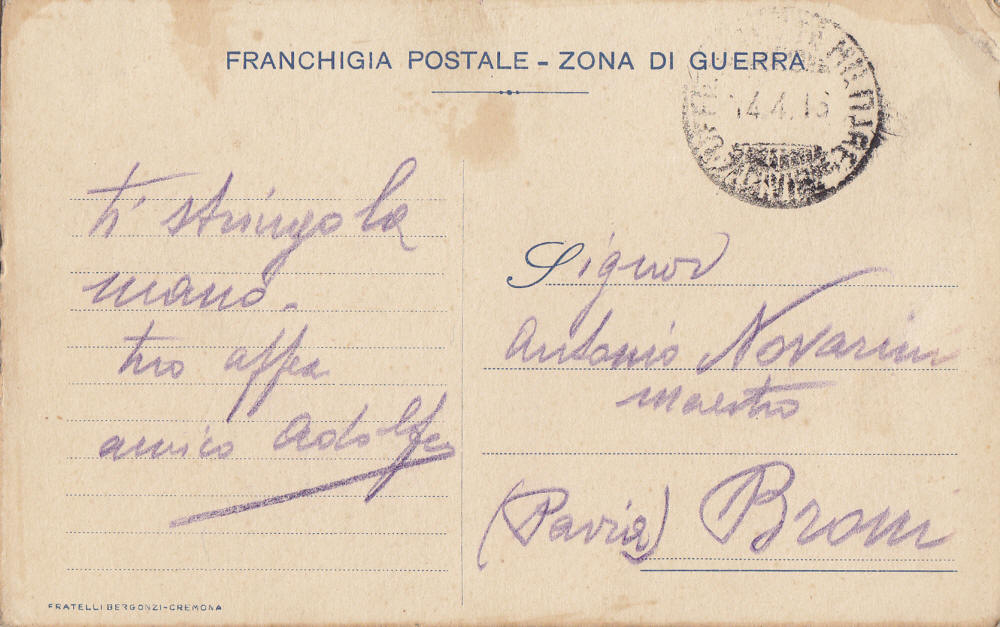 FRANCHIGIA POSTALE - ZONA DI GUERRA
14.4.16
ti stringo la
mano.
tuo affez
amico Adolfo
Signor
Antonio Novarini
maestro
(Pavia) Broni
FRATELLI BERGONZI-CREMONA